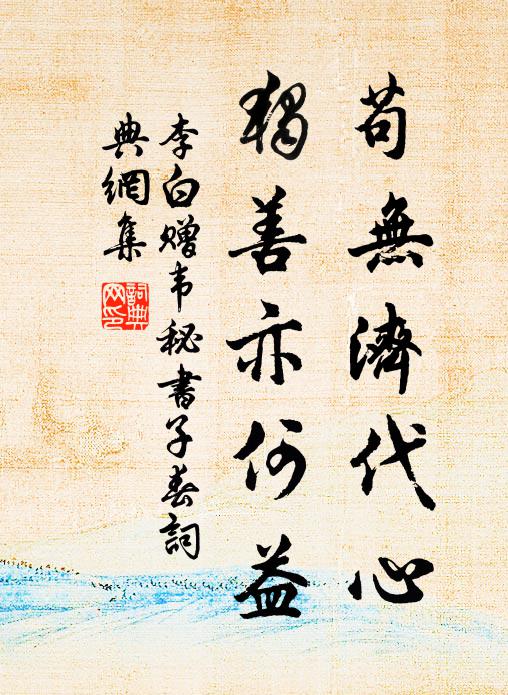 苟無濟代心
獨善亦何益
李白赠韦秘書子春詞
典網集
詞典
网印